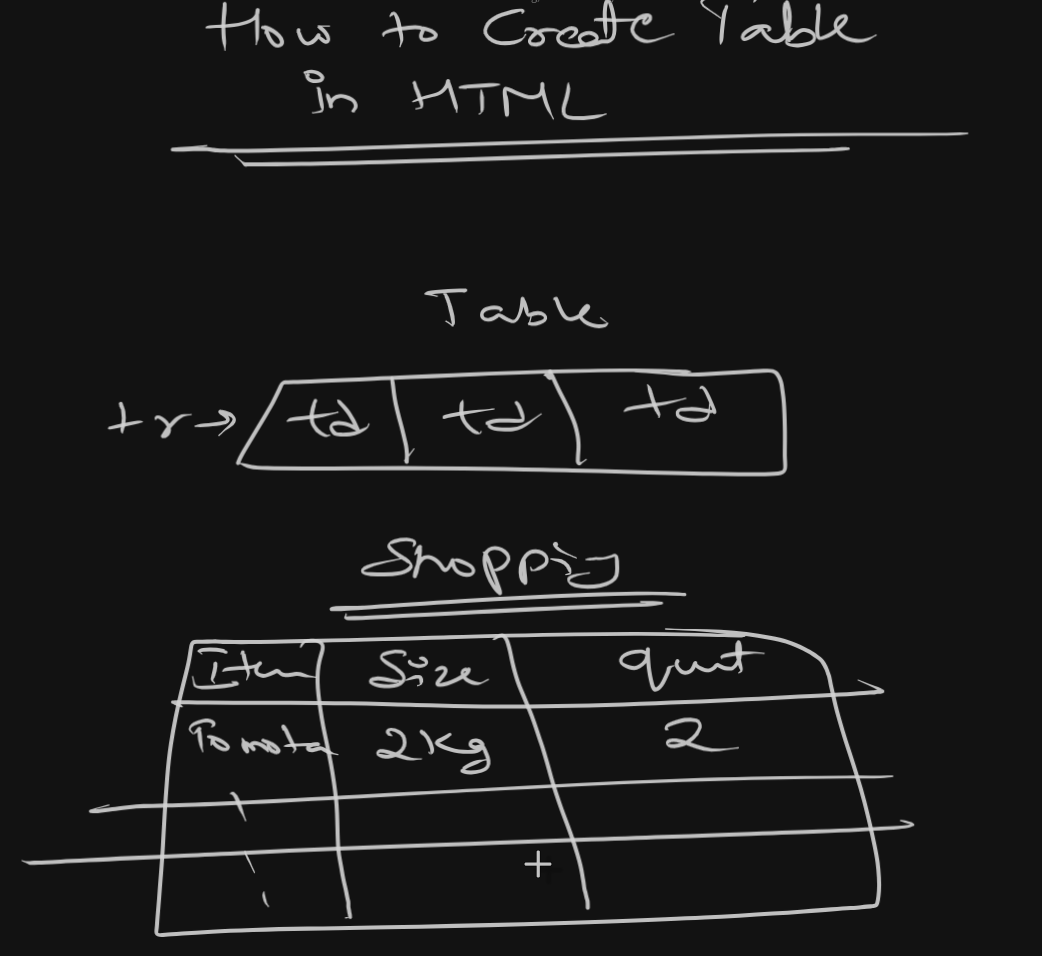 How to Create Table
in HTML
Table
tr → td td td
Shopping
Item Size qunt
Tomota 2Kg 2